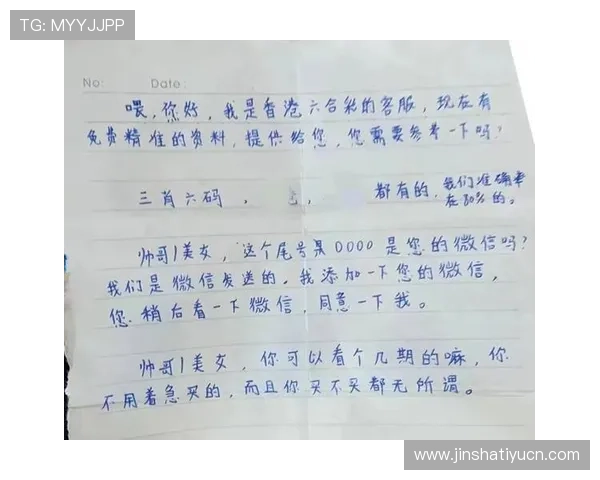 TG: MYYJJPP
No: Date:
喂，你好，我是香港六合彩的客服，现在有
免费精准的资料，提供给您，您需要参考一下吗？
三肖六码， ， 都有的，我们准确率
在80%的。
帅哥/美女，这个尾号是0000是您的微信吗？
我们是微信发送的，我添加一下您的微信，
您稍后看一下微信，同意一下我。
帅哥/美女，你可以看个几期的嘛，你
不用着急买的，而且你买不买都无所谓。
www.jinshatiyucn.com